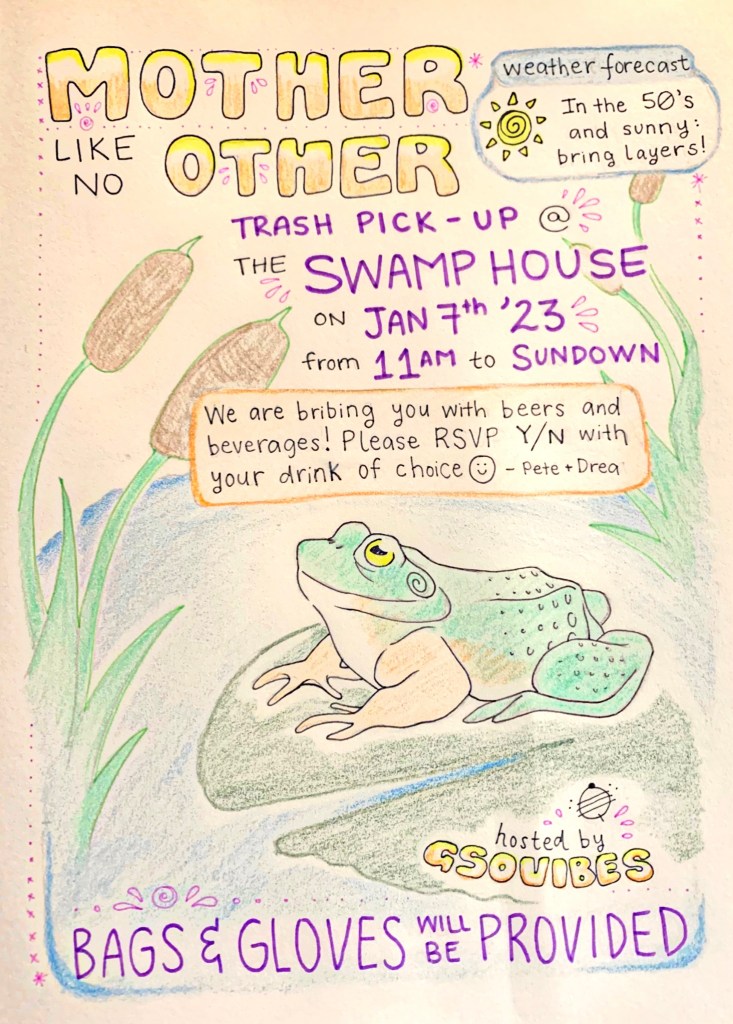 MOTHER
LIKE NO OTHER
weather forecast
In the 50's
and sunny:
bring layers!
TRASH PICK-UP @
THE SWAMP HOUSE
ON JAN 7th '23
from 11AM to SUNDOWN
We are bribing you with beers and
beverages! Please RSVP Y/N with
your drink of choice☺ - Pete + Drea
hosted by
GSOVIBES
BAGS & GLOVES WILL BE PROVIDED